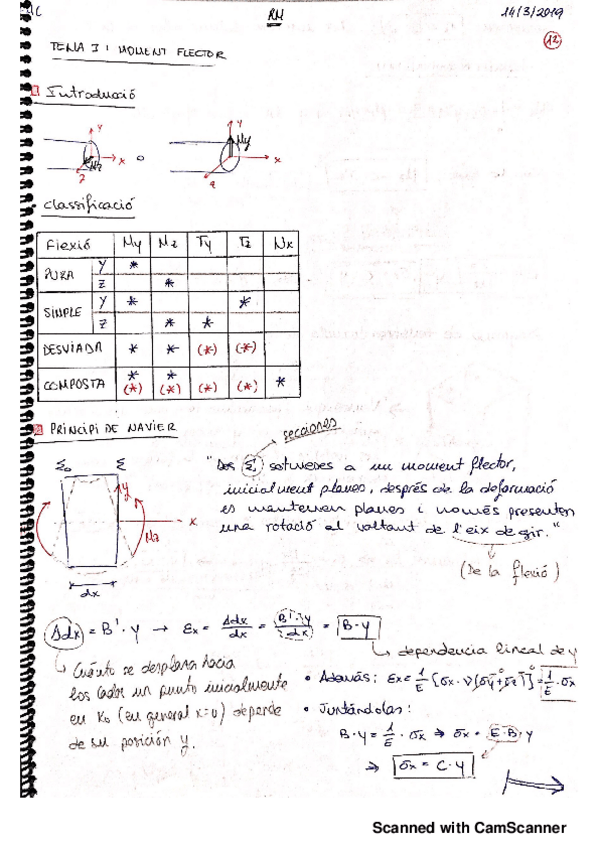 RM
14/3/2019
12
TEMA I : MOMENT FLECTOR
1 Introducció
y
x
z
Mz
o
y
My
x
z
Classificació
Flexió My Mz Ty Tz Nx
PURA y *
z *
SIMPLE y * *
z * *
DESVIADA * * (*) (*)
COMPOSTA * * *
(*) (*) (*) (*)
2 PRINCIPI DE NAVIER
secciones
Σo Σ
y
x
Mz
dx
"Dos Σ sotmeses a un moment flector,
inicialment planes, després de la deformació
es mantenen planes i només presenten
una rotació al voltant de l'eix de gir."
(De la flexió)
Δdx = B'·y → εx = Δdx/dx = B'·y/dx = B·y
dependencia lineal de y
Cuánto se desplaza hacia
los lados un punto inicialmente
en x0 (en general x=0) depende
de su posición y.
• Además: εx = 1/E [σx - ν(σy+σz)] = 1/E · σx
0 0
• Juntándolas:
B·y = 1/E · σx ⇒ σx = E·B·y
⇒ σx = C·y
Scanned with CamScanner